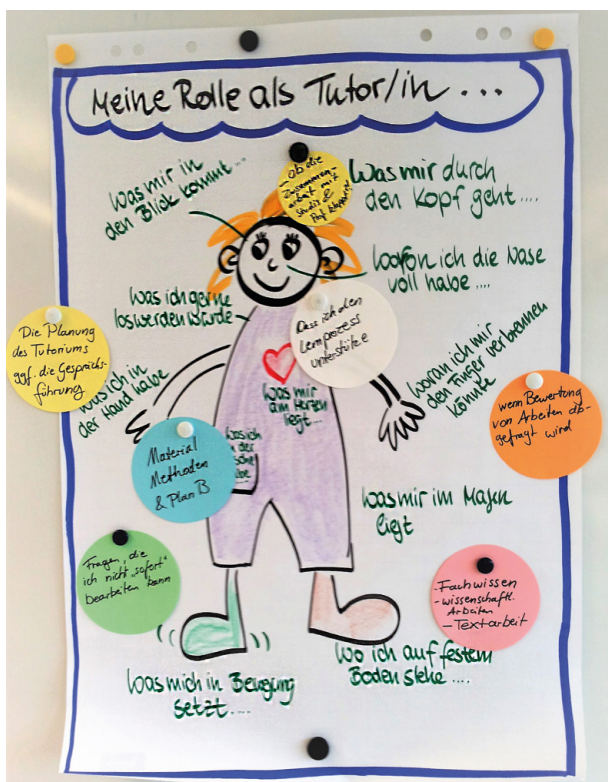 Meine Rolle als Tutor/in ...
Was mir in
den Blick kommt...
...ob die
Zusammen-
arbeit mit
Studis &
Prof klappt?
Was mir durch
den Kopf geht....
Wovon ich die Nase
voll habe....
Was ich gerne
loswerden würde
Dass ich den
Lernprozess
unterstütze
Die Planung
des Tutoriums
ggf. die Gesprächs-
führung
Was ich in
der Hand habe
Was mir
am Herzen
liegt...
Woran ich mir
den Finger verbrennen
könnte
wenn Bewertung
von Arbeiten ab-
gefragt wird
Material
Methoden
& Plan B
Was ich
der
Was mir im Magen
liegt
Fragen, die
ich nicht "sofort"
bearbeiten kann
-Fachwissen
-wissenschaftl.
Arbeiten
-Textarbeit
Was mich in Bewegung
setzt....
Wo ich auf festem
Boden stehe....